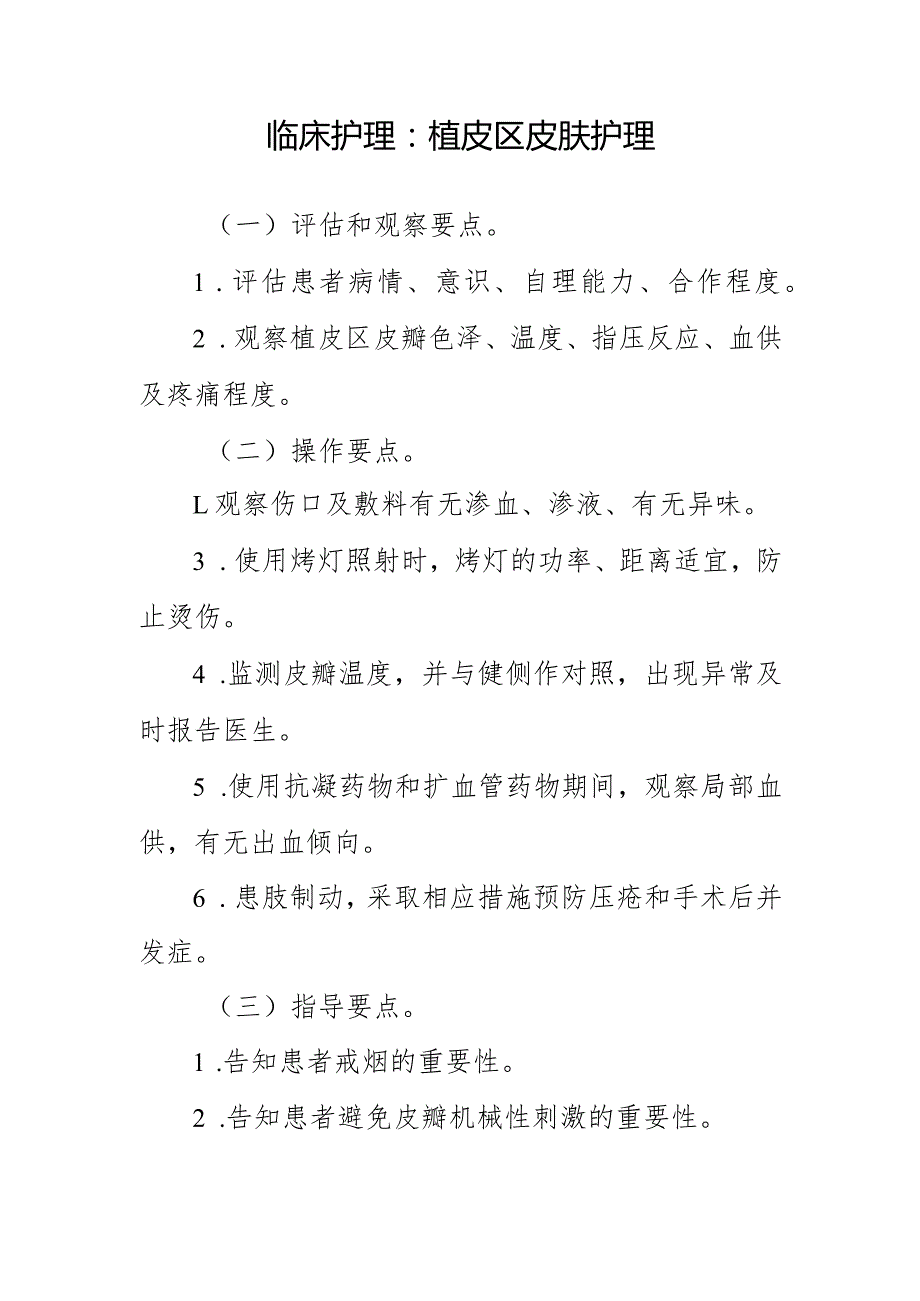 临床护理：植皮区皮肤护理
（一）评估和观察要点。
1 .评估患者病情、意识、自理能力、合作程度。
2 .观察植皮区皮瓣色泽、温度、指压反应、血供
及疼痛程度。
（二）操作要点。
L观察伤口及敷料有无渗血、渗液、有无异味。
3 .使用烤灯照射时，烤灯的功率、距离适宜，防
止烫伤。
4 .监测皮瓣温度，并与健侧作对照，出现异常及
时报告医生。
5 .使用抗凝药物和扩血管药物期间，观察局部血
供，有无出血倾向。
6 .患肢制动，采取相应措施预防压疮和手术后并
发症。
（三）指导要点。
1 .告知患者戒烟的重要性。
2 .告知患者避免皮瓣机械性刺激的重要性。